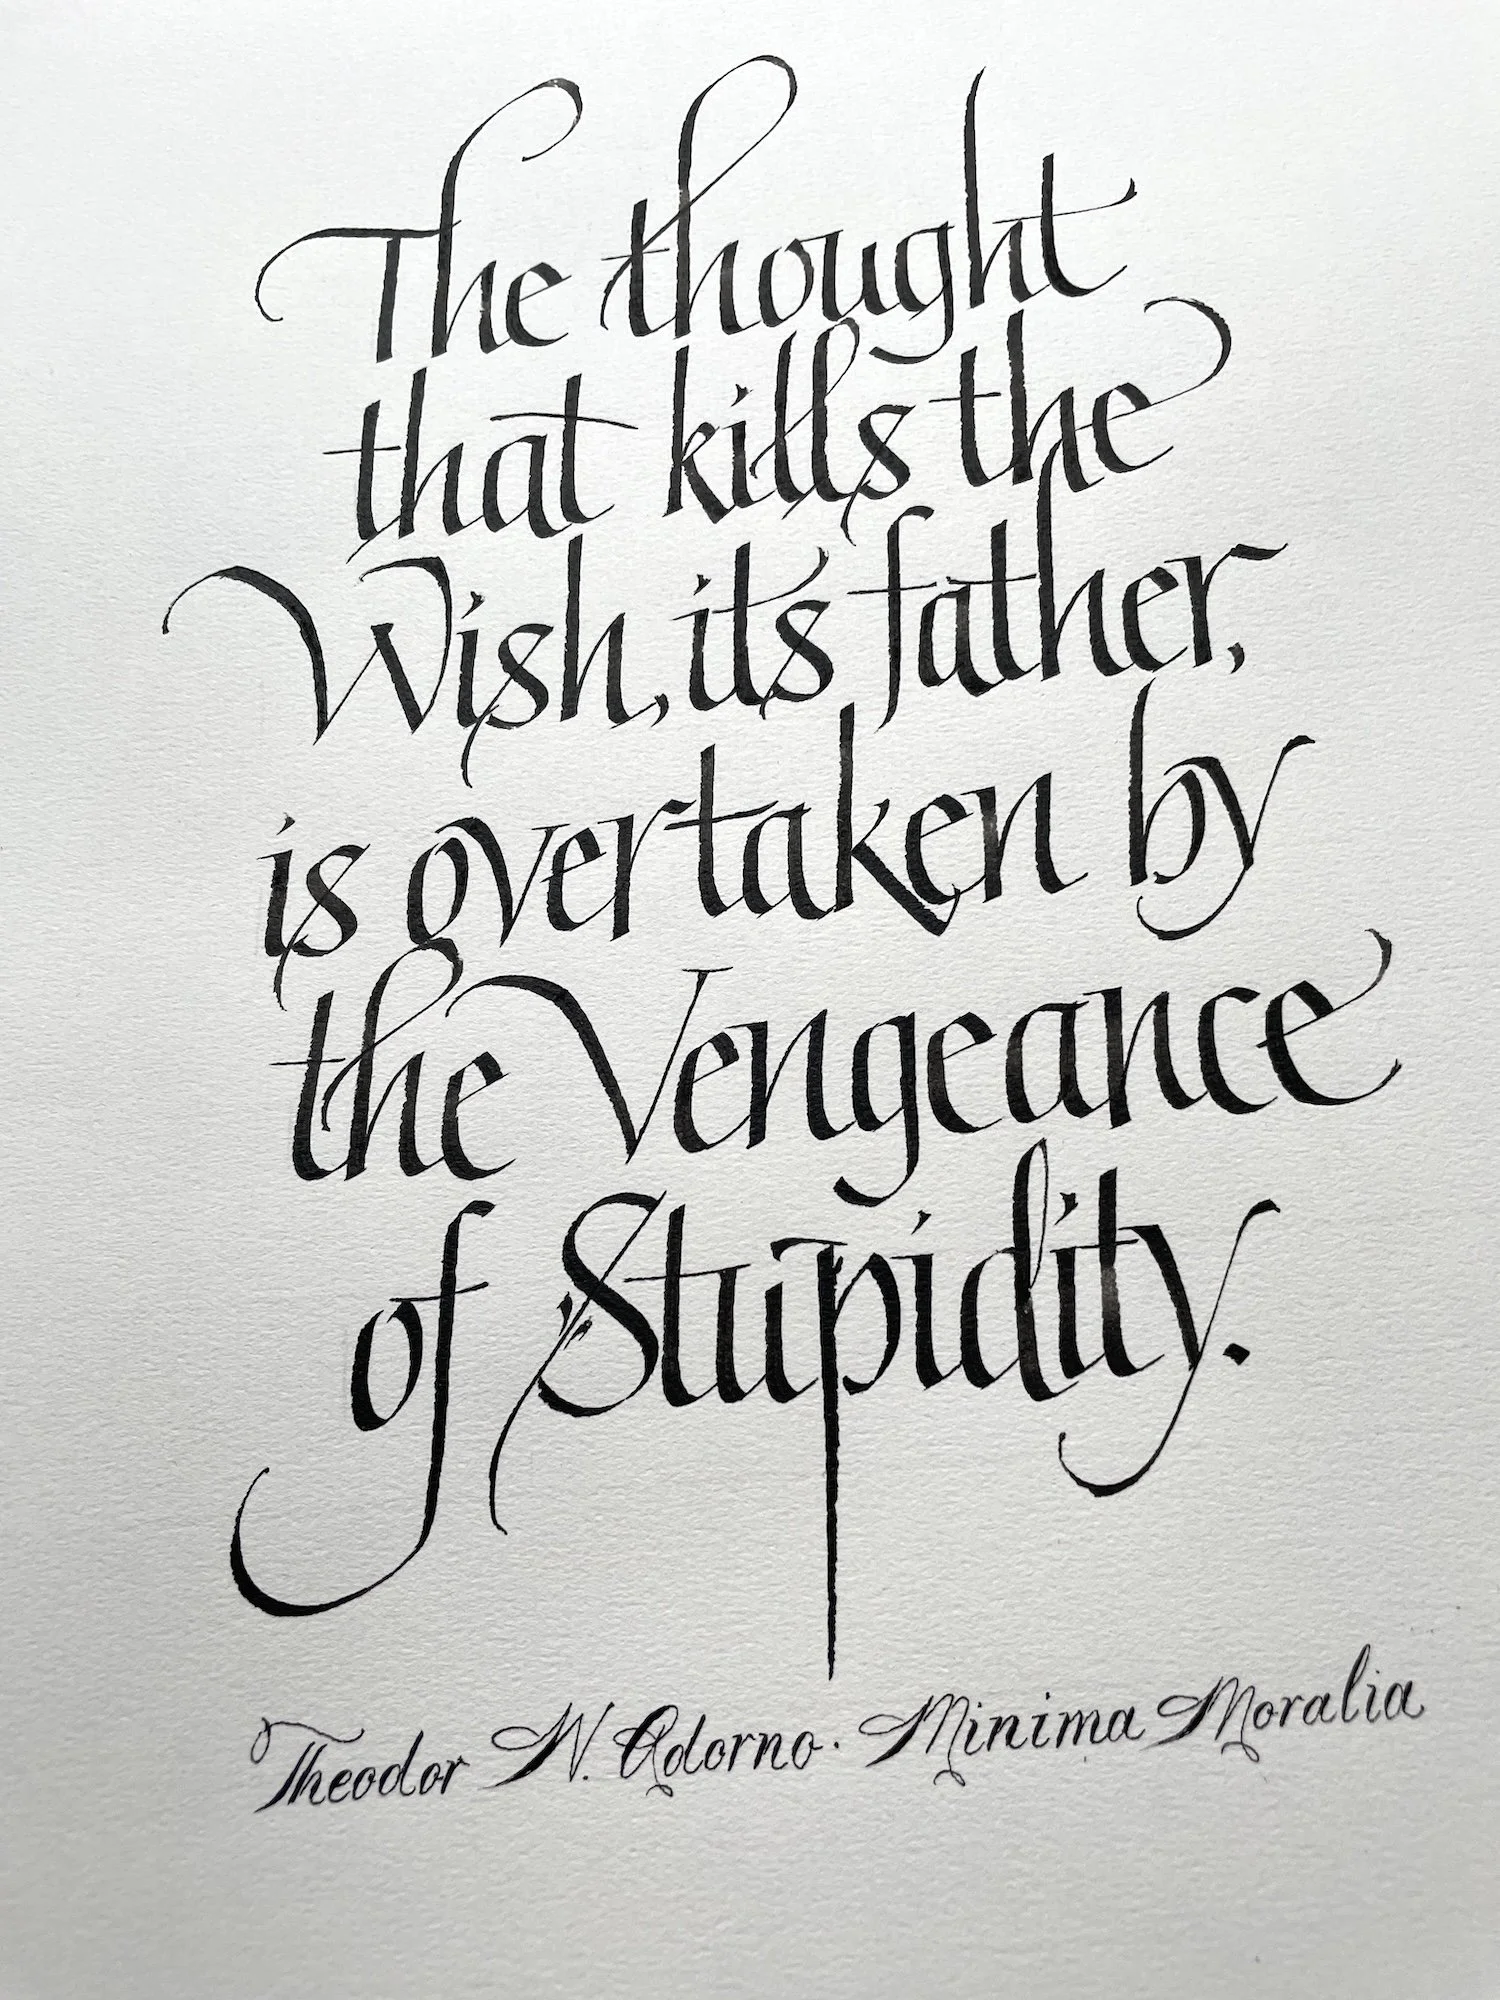 The thought
that kills the
Wish, its father,
is overtaken by
the Vengeance
of Stupidity.
Theodor W. Adorno · Minima Moralia